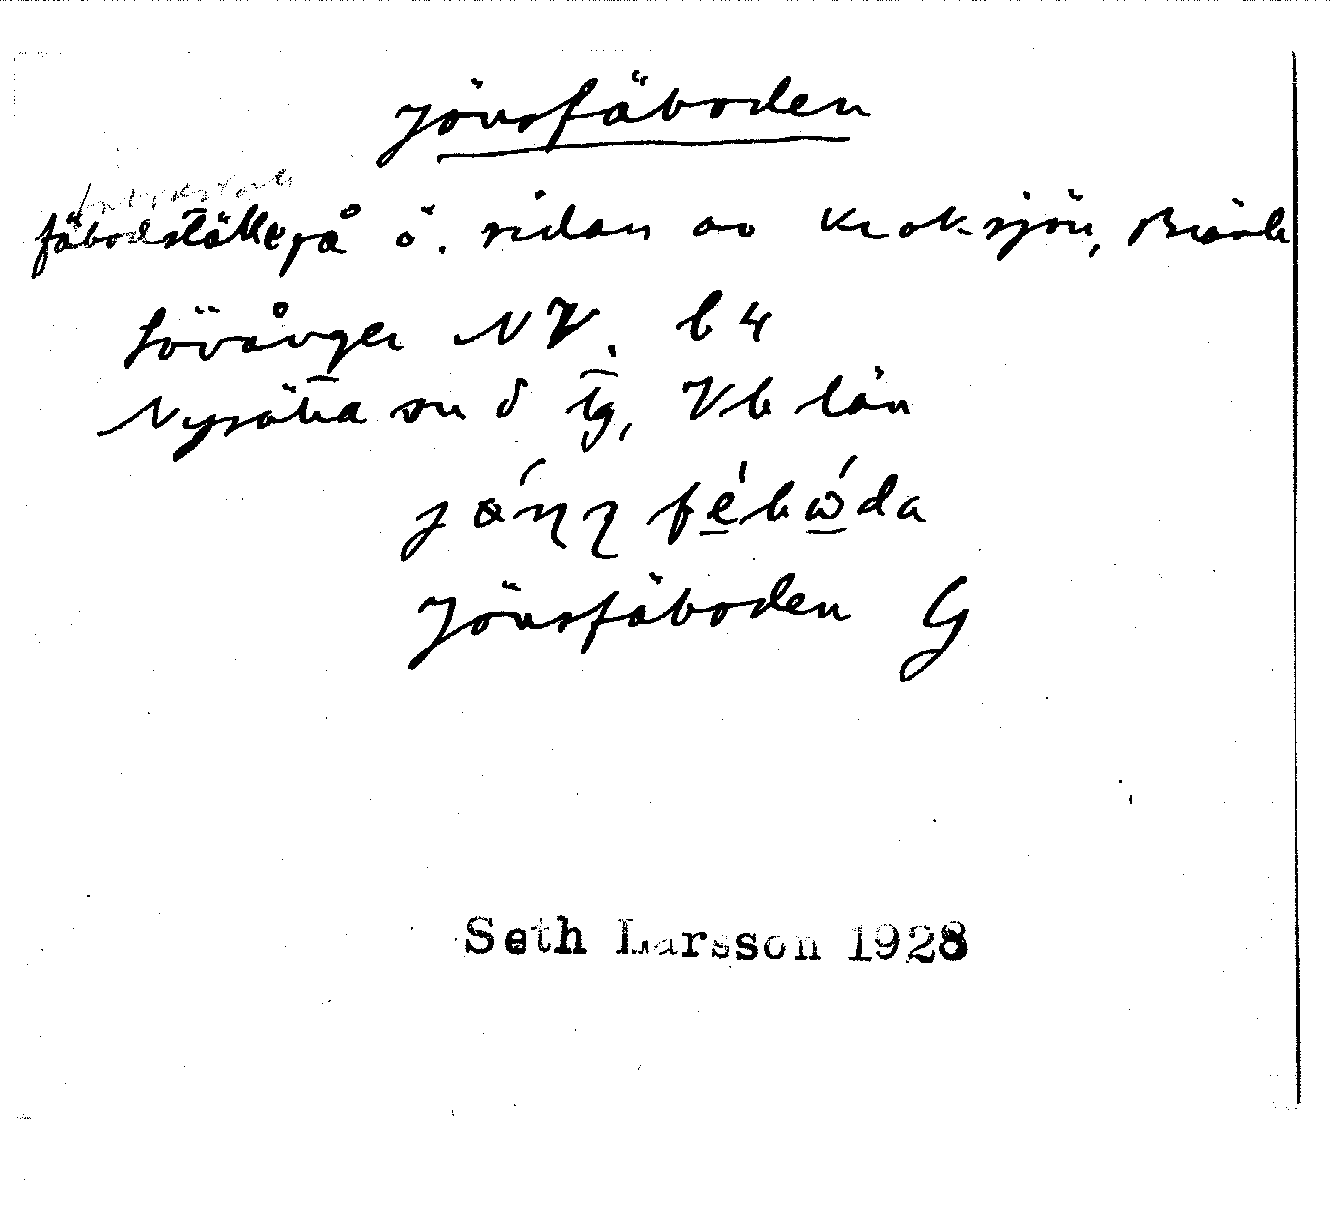 Jönsfäboden
fäbodställe på ö. sidan av Kroksjön, Bränte
Lövånger NV. b 4
Nysätra sn o tg, Vb län
Jönsfäboden G
Seth Larsson 1928